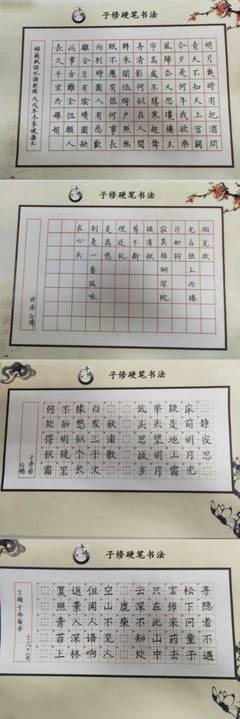 子修硬笔书法
明月幾時有把酒問
青天不知天上宮闕
今夕是何年我欲乘
風歸去又恐瓊樓玉
宇高處不勝寒起舞
弄清影何似在人間
轉朱閣低綺戶照無
眠不應有恨何事長
向別時圓人有悲歡
離合月有陰晴圓缺
此事古難全但願人
長久千里共嬋娟
子修硬笔书法
相见欢
无言独上西楼
月如钩
寂寞梧桐深院
锁清秋
剪不断
理还乱
是离愁
别是一番滋味
在心头
子修硬笔书法
静夜思
床前明月光
疑是地上霜
举头望明月
低头思故乡
秋浦歌
白发三千丈
缘愁似个长
不知明镜里
何处得秋霜
子修硬笔书法
寻隐者不遇
松下问童子
言师采药去
只在此山中
云深不知处
鹿柴
空山不见人
但闻人语响
返景入深林
复照青苔上